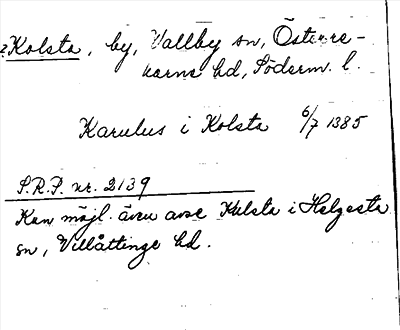 Kolsta, by, Vallby sn, Österre-
karne hd, Söderm. l.
Karulus i Kolsta 6/7 1385
S.R.P. nr. 2139
Kan möjl. även avse Kulsta i Helgesta
sn, Villåttinge hd.